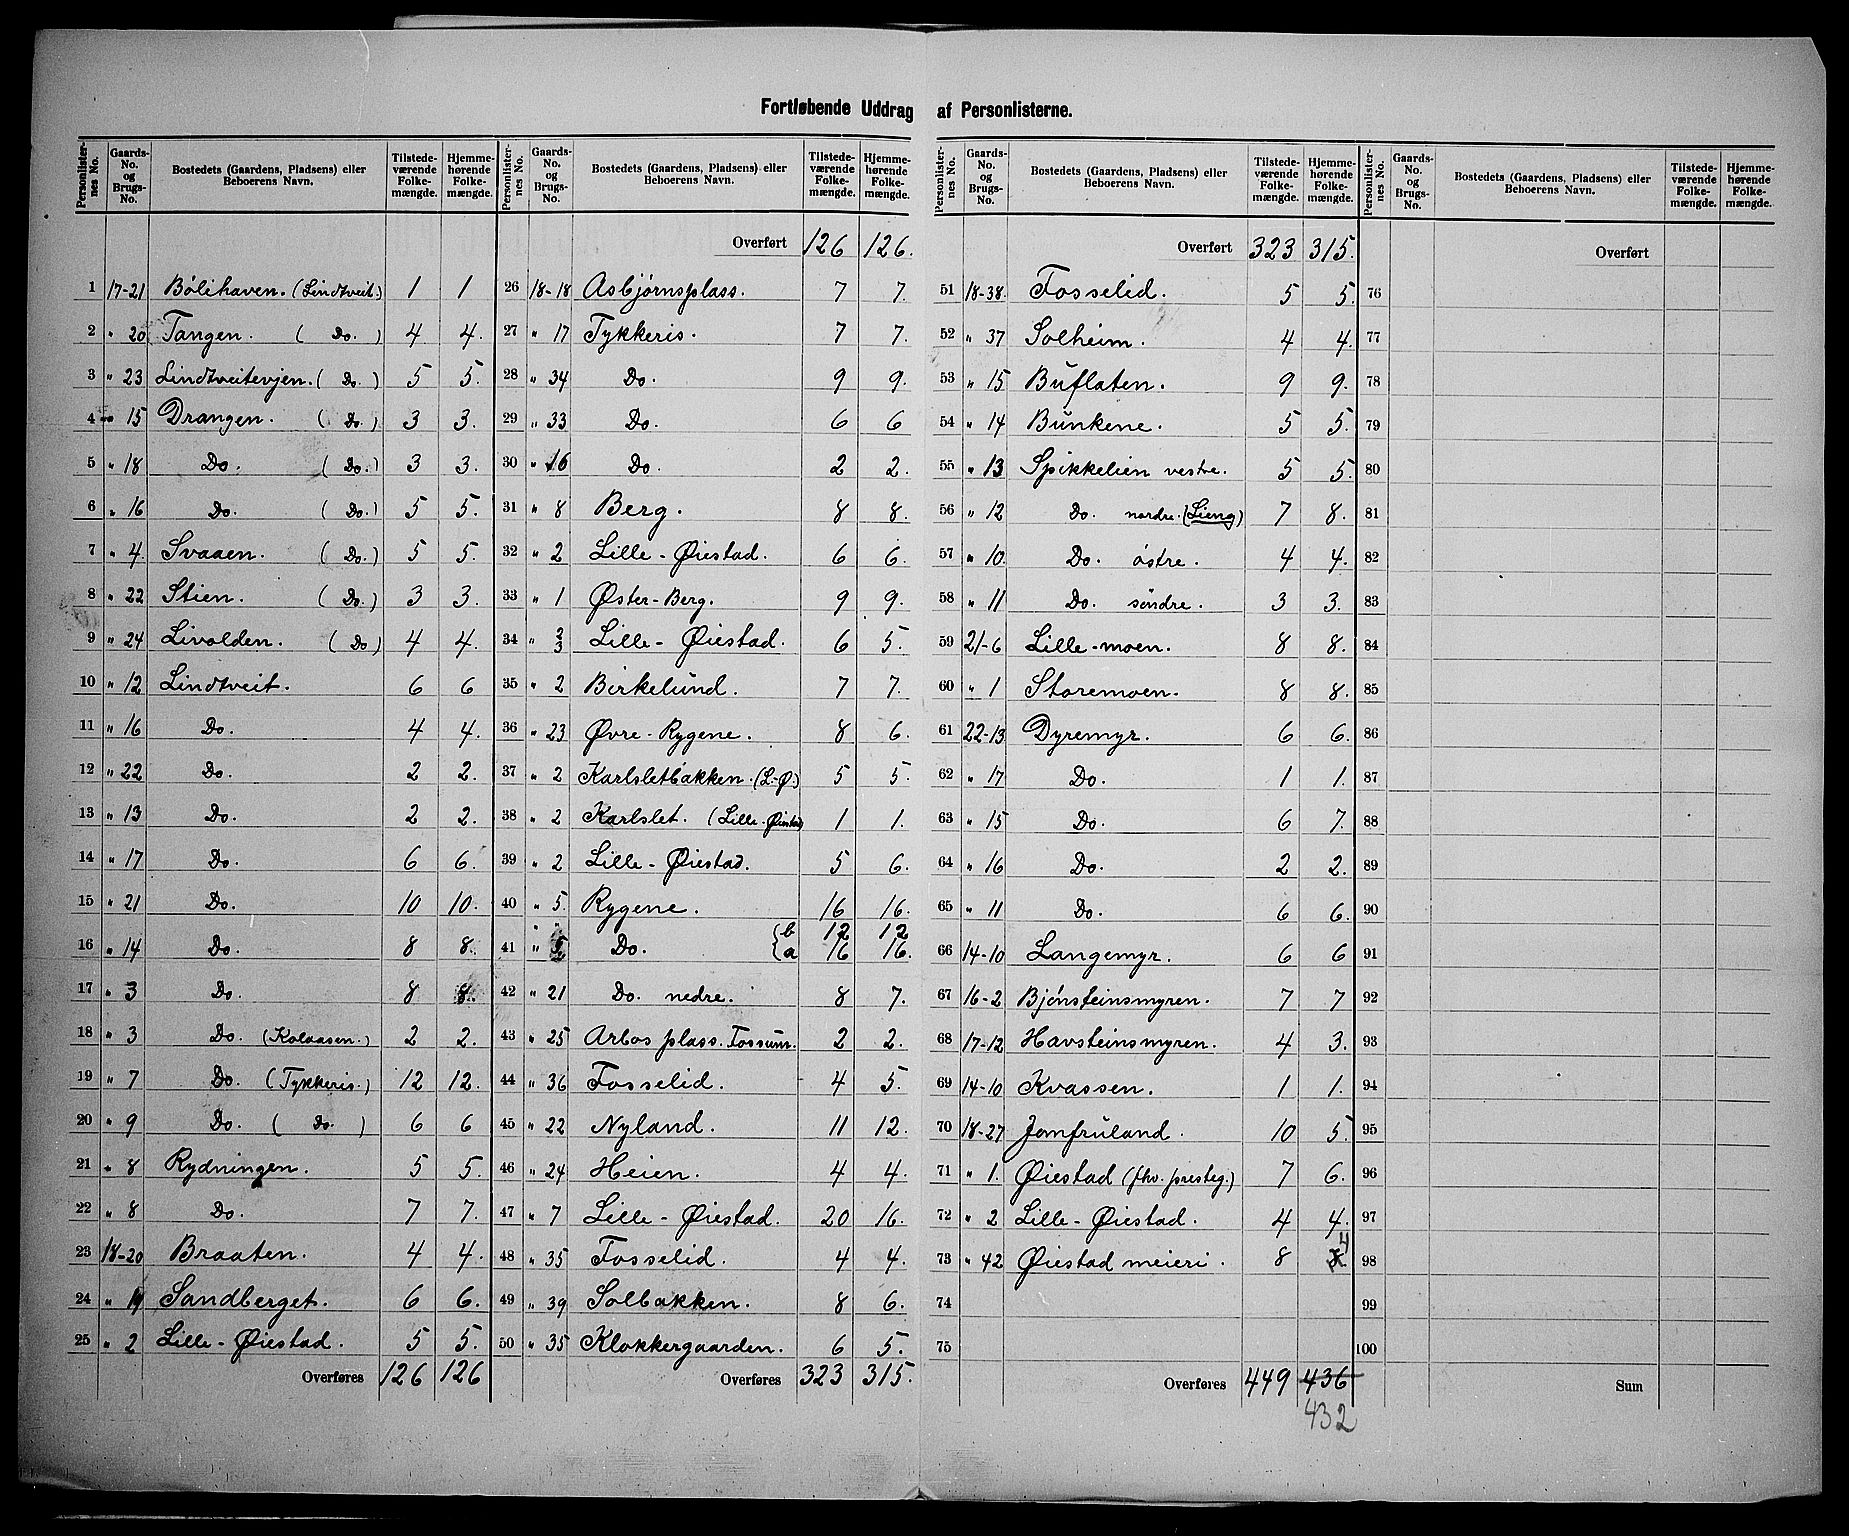 Fortløbende Uddrag af Personlisterne.
Personlister-nes No. | Gaards-No. og Brugs-No. | Bostedets (Gaardens, Pladsens) eller Beboerens Navn. | Tilstede-værende Folke-mængde. | Hjemme-hørende Folke-mængde.
1 17-21 Bölihaven. (Lindtveit.) 1 1
2 " 20 Tangen. ( Do. ) 4 4.
3 " 23 Lindtveitevjen. ( Do. ) 5 5.
4 " 15 Drangen. ( Do. ) 3 3.
5 " 18 Do. ( Do. ) 3 3.
6 " 16 Do. ( Do. ) 5 5.
7 " 4. Svaaen. ( Do. ) 5 5.
8 " 22 Stien. ( Do. ) 3 3.
9 " 24 Livolden. ( Do ) 4 4.
10 " 12 Lindtveit. 6 6
11 " 16 Do. 4 4.
12 " 22 Do. 2 2.
13 " 13 Do. 2 2.
14 " 17 Do. 6 6.
15 " 21 Do. 10 10.
16 " 14 Do. 8 8.
17 " 3 Do. 8 8.
18 " 3 Do. (Kolaasen.) 2 2.
19 " 7 Do. (Tykkeris.) 12 12.
20 " 9 Do. ( Do. ) 6 6
21 " 8 Rydningen. 5 5.
22 " 8 Do. 7 7.
23 18-20 Braaten. 4 4.
24 " 19 Sandberget. 6 6.
25 " 2 Lille-Øiestad. 5 5.
Overføres 126 126
Personlister-nes No. | Gaards-No. og Brugs-No. | Bostedets (Gaardens, Pladsens) eller Beboerens Navn. | Tilstede-værende Folke-mængde. | Hjemme-hørende Folke-mængde.
Overført 126 126.
26 18-18 Asbjørnsplass. 7 7.
27 " 17 Tykkeris. 7 7.
28 " 34 Do. 9 9.
29 " 33 Do. 6 6
30 " 16 Do. 2 2.
31 " 8 Berg. 8 8.
32 " 2 Lille-Øiestad. 6 6.
33 " 1 Øster-Berg. 9 9.
34 " 2 3 Lille-Øiestad. 6 5.
35 " 2 Birkelund. 7 7.
36 " 23 Øvre-Rygene. 8 6.
37 " 2 Karlsletbakken. (L.-Ø.) 5 5.
38 " 2 Karlslet. (Lille-Øiestad) 1 1.
39 " 2 Lille-Øiestad. 5 6.
40 " 5. Rygene. 16 16.
41 " 5 Do. { b 12 12
{ a 16 16.
42 " 21 Do. nedre. 8 7.
43 " 25 Arbos plass. Fossum. 2 2.
44 " 36 Fosselid. 4 5.
45 " 22 Nyland. 11 12.
46 " 24 Heien. 4 4.
47 " 7 Lille-Øiestad. 20 16.
48 " 35 Fosselid. 4 4.
49 " 39 Solbakken. 8 6.
50 " 35 Klokkergaarden. 6 5.
Overføres 323 315.
Personlister-nes No. | Gaards-No. og Brugs-No. | Bostedets (Gaardens, Pladsens) eller Beboerens Navn. | Tilstede-værende Folke-mængde. | Hjemme-hørende Folke-mængde.
Overført 323 315.
51 18-38. Fosselid. 5 5.
52 " 37 Solheim. 4 4.
53 " 15 Buflaten. 9 9.
54 " 14 Bunkene. 5 5.
55 " 13 Spikkelien vestre. 5 5.
56 " 12 Do. nordre. (Lieng) 7 8.
57 " 10. Do. östre. 4 4.
58 " 11 Do. söndre. 3 3.
59 21-6 Lille-moen. 8 8.
60 " 1 Storemoen. 8 8.
61 22-13 Dyremyr. 6 6.
62 " 17 Do. 1 1.
63 " 15 Do. 6 7.
64 " 16 Do. 2 2.
65 " 11 Do. 6 6.
66 14-10 Langemyr. 6 6
67 16-2 Bjønsteinsmyren. 7 7
68 17-12 Havsteinsmyren. 4 3.
69 14-10 Kvassen. 1 1.
70 18-27 Jomfruland. 10 5.
71 " 1. Øiestad (fhv. presteg.) 7 6.
72 " 2 Lille-Øiestad. 4 4.
73 " 42 Øiestad meieri. 8 8. 4
74
75
Overføres 449 436
432
Personlister-nes No. | Gaards-No. og Brugs-No. | Bostedets (Gaardens, Pladsens) eller Beboerens Navn. | Tilstede-værende Folke-mængde. | Hjemme-hørende Folke-mængde.
Overført
76
77
78
79
80
81
82
83
84
85
86
87
88
89
90
91
92
93
94
95
96
97
98
99
100
Sum